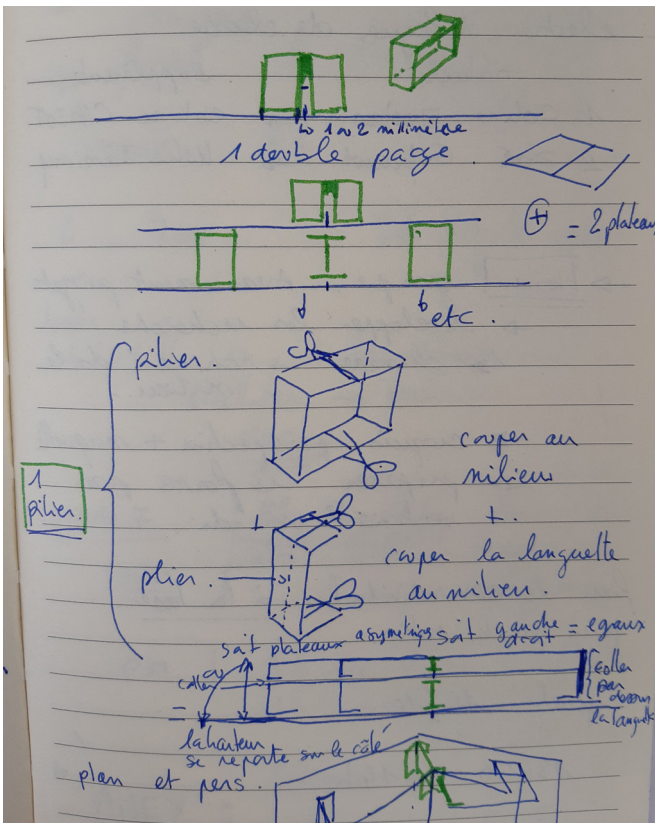 1 ou 2 millimètre
1 double page.
+ = 2 plateau
etc.
pilier.
1 pilier.
couper au
milieu
+
+.
couper la languette
au milieu.
plier.
soit plateaux asymétriqs soit gauche droit = egaux
ou
coller
coller par dessous la languette
=
la hauteur
se reporte sur le côté
plan et pers.